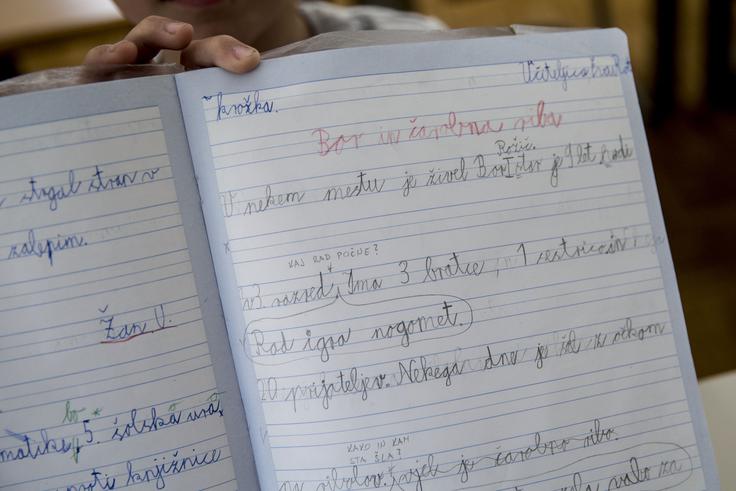 strgal stran v
zalepim.
Žan V.
bo
matike, 5. šolska ura,
proti knjižnice
Učiteljica
krožka.
Bor in čarobna riba
Rožič.
V nekem mestu je živel Bor Istar je 9 let hodi
KAJ RAD POČNE?
v 3. razred, Ima 3 bratce, 1 sestrico in
Rad igra nogomet.
20 prijateljev. Nekega dne je šel z očkom
KAKO IN KAM
STA ŠLA?
ribolov. Ujel je čarobno ribo.
za